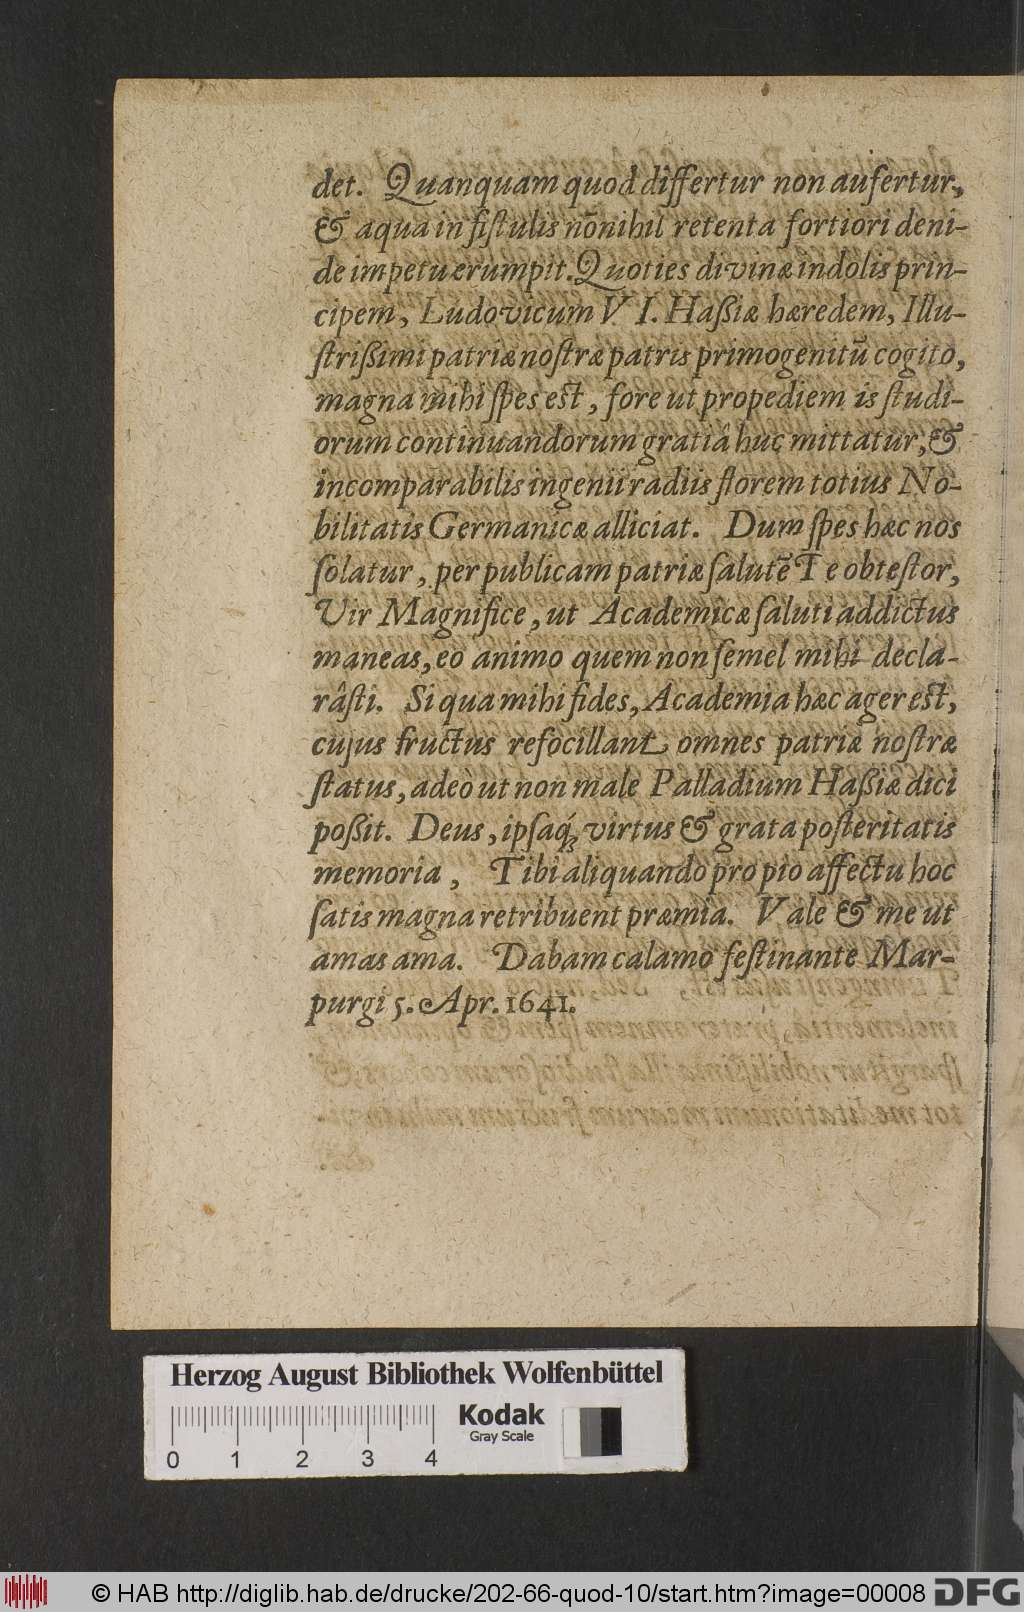 det. Quanquam quod differtur non aufertur,
& aqua in fiſtulis nōnihil retenta fortiori deni-
de impetu erumpit. Quoties divinæ indolis prin-
cipem, Ludovicum VI. Haßiæ hæredem, Illu-
ſtrißimi patriæ noſtræ patris primogenitū cogito,
magna mihi ſpes eſt, fore ut propediem is ſtudi-
orum continuandorum gratiâ huc mittatur, &
incomparabilis ingenii radiis florem totius No-
bilitatis Germanicæ alliciat. Dum ſpes hæc nos
ſolatur, per publicam patriæ ſalutē Te obteſtor,
Vir Magnifice, ut Academicæ ſaluti addictus
maneas, eo animo quem non ſemel mihi decla-
râſti. Si qua mihi fides, Academia hæc ager eſt,
cujus fructus refocillant omnes patriæ noſtræ
ſtatus, adeò ut non male Palladium Haßiæ dici
poßit. Deus, ipſaq́; virtus & grata poſteritatis
memoria, Tibi aliquando pro pio affectu hoc
ſatis magna retribuent præmia. Vale & me ut
amas ama. Dabam calamo feſtinante Mar-
purgi 5. Apr. 1641.
Herzog August Bibliothek Wolfenbüttel
Kodak
Gray Scale
0 1 2 3 4
© HAB http://diglib.hab.de/drucke/202-66-quod-10/start.htm?image=00008
DFG